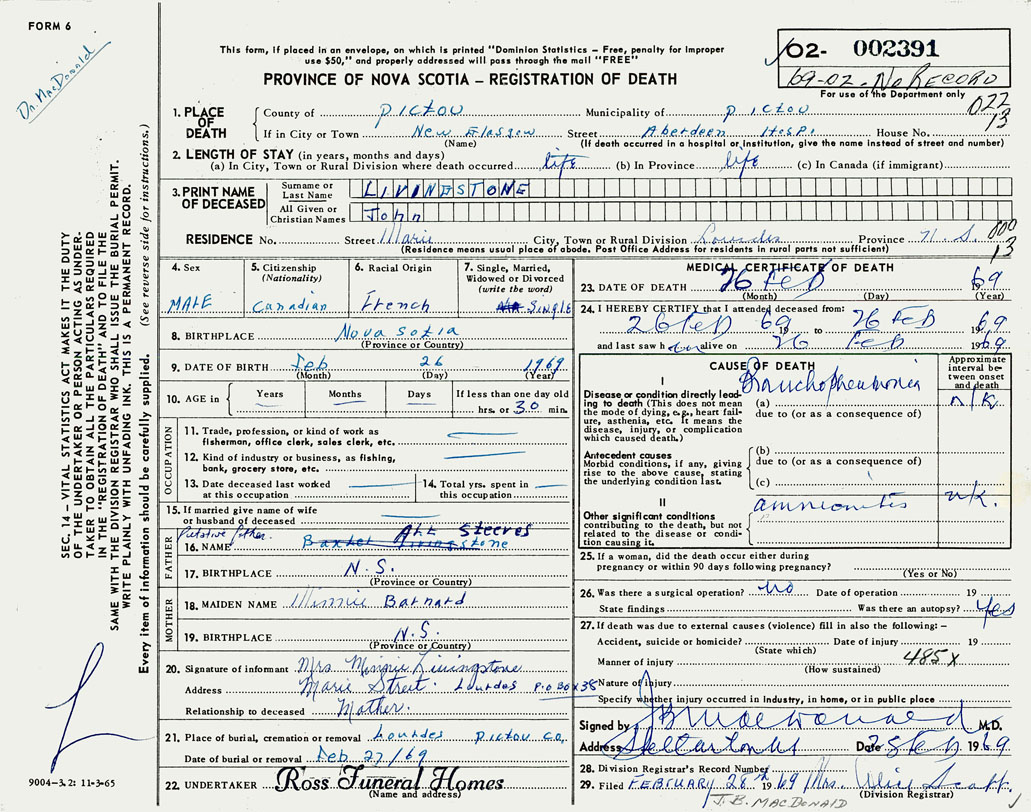 FORM 6
Dr. MacDonald
This form, if placed in an envelope, on which is printed "Dominion Statistics – Free, penalty for improper
use $50," and properly addressed will pass through the mail "FREE"
PROVINCE OF NOVA SCOTIA – REGISTRATION OF DEATH
02- 002391
69-02-No RECORD
For use of the Department only
022
13
1. PLACE OF DEATH
County of Pictou Municipality of Pictou
If in City or Town New Glasgow Street Aberdeen Hosp. House No.
(Name) (If death occurred in a hospital or institution, give the name instead of street and number)
2. LENGTH OF STAY (in years, months and days)
(a) In City, Town or Rural Division where death occurred life (b) In Province life (c) In Canada (if immigrant)
3. PRINT NAME OF DECEASED
Surname or Last Name LIVINGSTONE
All Given or Christian Names John
RESIDENCE No. Street Marie City, Town or Rural Division Lourdes Province N.S.
000
13
(Residence means usual place of abode. Post Office Address for residents in rural parts not sufficient)
4. Sex
MALE
5. Citizenship
(Nationality)
Canadian
6. Racial Origin
French
7. Single, Married,
Widowed or Divorced
(write the word)
Single
8. BIRTHPLACE Nova Sotia
(Province or Country)
9. DATE OF BIRTH Feb 26 1969
(Month) (Day) (Year)
10. AGE in Years Months Days If less than one day
hrs. or 30 min.
OCCUPATION
11. Trade, profession, or kind of work as
fisherman, office clerk, sales clerk, etc.
12. Kind of industry or business, as fishing,
bank, grocery store, etc.
13. Date deceased last worked
at this occupation
14. Total yrs. spent in
this occupation
15. If married give name of wife
or husband of deceased
FATHER
Putative father.
Steeves
16. NAME Baxter Livingstone
17. BIRTHPLACE N.S.
(Province or Country)
MOTHER
18. MAIDEN NAME Minnie Barnard
19. BIRTHPLACE N.S.
(Province or Country)
20. Signature of informant Mrs. Minnie Livingstone
Address Marie Street. Lourdes P.O Box 38
Relationship to deceased Mother.
21. Place of burial, cremation or removal Lourdes Pictou Co.
Date of burial or removal Feb 27/69
22. UNDERTAKER Ross Funeral Homes
(Name and address)
MEDICAL CERTIFICATE OF DEATH
23. DATE OF DEATH 26 Feb 69
(Month) (Day) (Year)
24. I HEREBY CERTIFY that I attended deceased from:
26 Feb 69 19 to 26 Feb 1969
and last saw him alive on 26 Feb 1969
CAUSE OF DEATH
Approximate interval between onset and death
I
Disease or condition directly leading to death (This does not mean the mode of dying, e.g., heart failure, asthenia, etc. It means the disease, injury, or complication which caused death.)
(a) Bronchopneumonia n/k
due to (or as a consequence of)
Antecedent causes
Morbid conditions, if any, giving rise to the above cause, stating the underlying condition last.
(b)
due to (or as a consequence of)
(c)
II
Other significant conditions
contributing to the death, but not related to the disease or condition causing it.
amnionitis n/k.
25. If a woman, did the death occur either during
pregnancy or within 90 days following pregnancy?
(Yes or No)
26. Was there a surgical operation? No Date of operation 19
State findings Was there an autopsy? Yes
27. If death was due to external causes (violence) fill in also the following:–
Accident, suicide or homicide? Date of injury 19
(State which)
Manner of injury 485X
(How sustained)
Nature of injury
Specify whether injury occurred in industry, in home, or in public place
Signed by JB MacDonald M.D.
Address Stellarton NS Date 28 Feb 1969
28. Division Registrar's Record Number
29. Filed FEBRUARY 28th 1969 Mrs. Scott
(Division Registrar)
J. B. MACDONALD
SEC. 14 – VITAL STATISTICS ACT MAKES IT THE DUTY
OF THE UNDERTAKER OR PERSON ACTING AS UNDER-
TAKER TO OBTAIN ALL THE PARTICULARS REQUIRED
IN THE "REGISTRATION OF DEATH" AND TO FILE THE
SAME WITH THE DIVISION REGISTRAR WHO SHALL ISSUE THE BURIAL PERMIT.
WRITE PLAINLY WITH UNFADING INK. THIS IS A PERMANENT RECORD.
Every item of information should be carefully supplied. (See reverse side for instructions.)
9004–3.2: 11-3-65